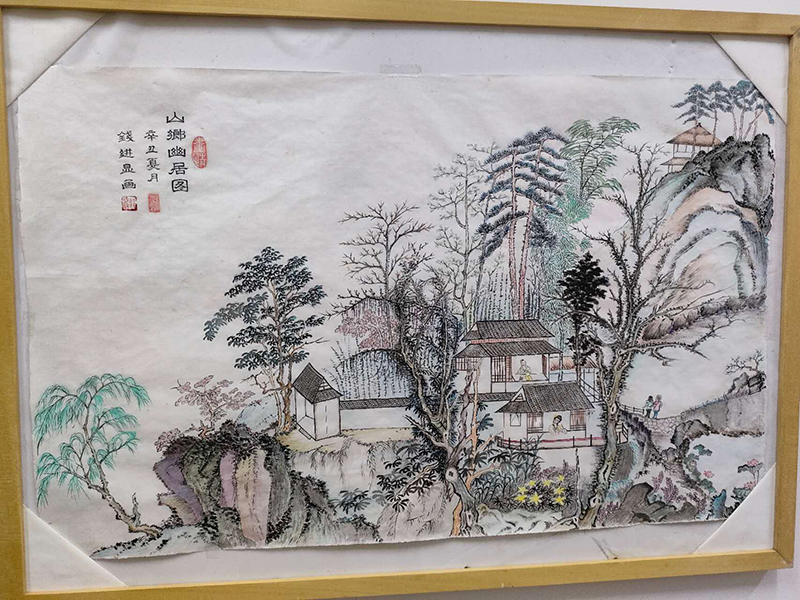 山鄉幽居图
辛丑夏月
錢進显画